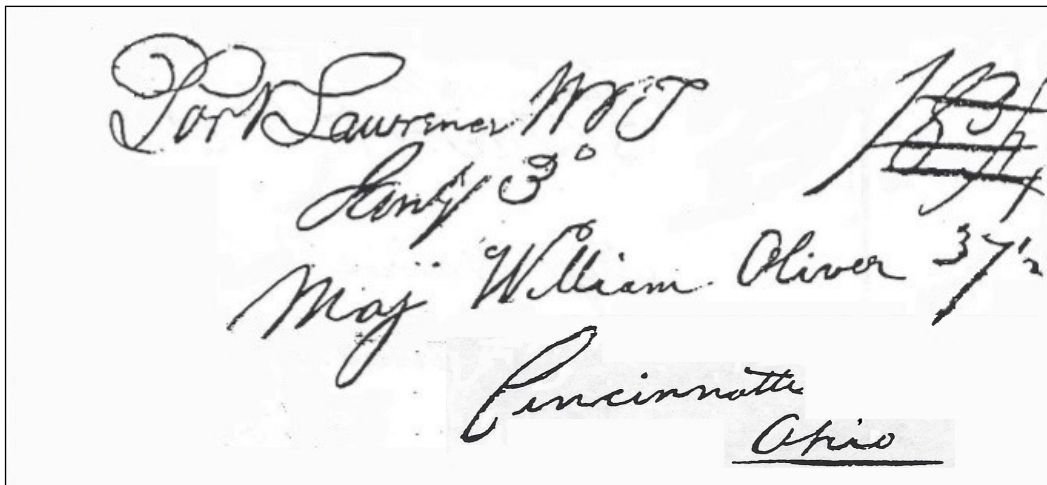 Port Lawrence
Jany 3°
Maj William Oliver 37½
Cincinnatti
Ohio